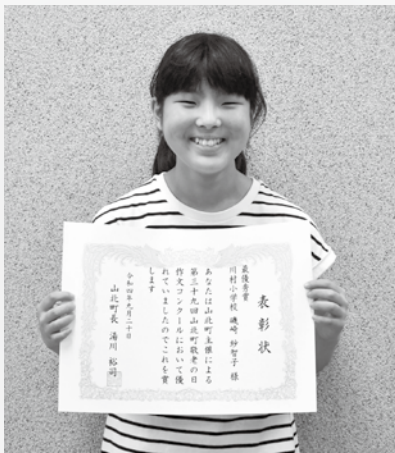 表彰状
最優秀賞
川村小学校 磯崎 紗智子 様
あなたは山北町主催による
第三十九回山北町敬老の日
作文コンクールにおいて優
れていましたのでこれを賞
します
令和四年九月二十日
山北町長 湯川 裕司